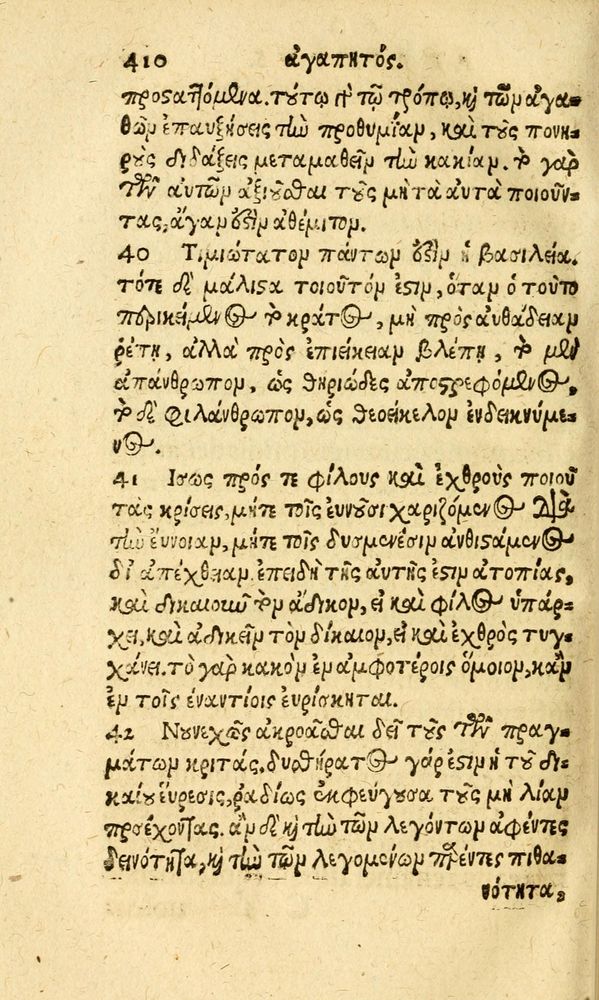 410 ἀγαπητός.
προσαπτόμενα. τούτῳ γὰρ τῷ τρόπῳ, καὶ τῶν ἀγα-
θῶν ἐπαυξήσεις τὴν προθυμίαν, καὶ τοὺς πονη-
ροὺς διδάξεις μεταμαθεῖν τὴν κακίαν. τὸ γὰρ
τῶν αὐτῶν ἀξιοῦσθαι τοὺς μὴ τὰ αὐτὰ ποιοῦν-
τας, ἄγαν ἐστὶν ἀθέμιτον.
40 Τιμιώτατον πάντων ἐστὶν ἡ βασιλεία.
τότε δὲ μάλιστα τοιοῦτόν ἐστιν, ὅταν ὁ τοῦτο
περικείμενος τὸ κράτος, μὴ πρὸς αὐθάδειαν
ῥέπῃ, ἀλλὰ πρὸς ἐπιείκειαν βλέπῃ, τὸ μὲν
ἀπάνθρωπον, ὡς θηριῶδες ἀποστρεφόμενος,
τὸ δὲ φιλάνθρωπον, ὡς θεοείκελον ἐνδεικνύμε-
νος.
41 Ἴσως πρός τε φίλους καὶ ἐχθροὺς ποιοῦ
τὰς κρίσεις, μήτε τοῖς εὐνοῦσι χαριζόμενος διὰ
τὴν εὔνοιαν, μήτε τοῖς δυσμενέσιν ἀνθιστάμενος
δι' ἀπέχθειαν. ἐπειδὴ τῆς αὐτῆς ἐστιν ἀτοπίας,
καὶ δικαιοῦν τὸν ἄδικον, εἰ καὶ φίλος ὑπάρ-
χει, καὶ ἀδικεῖν τὸν δίκαιον, εἰ καὶ ἐχθρὸς τυγ-
χάνει. τὸ γὰρ κακὸν ἐν ἀμφοτέροις ὅμοιον, κἂν
ἐν τοῖς ἐναντίοις εὑρίσκηται.
42 Νουνεχῶς ἀκροᾶσθαι δεῖ τοὺς τῶν πραγ-
μάτων κριτάς. δυσθήρατος γάρ ἐστιν ἡ τοῦ δι-
καίου εὕρεσις, ῥᾳδίως ἐκφεύγουσα τοὺς μὴ λίαν
προσέχοντας. ἂν δὲ καὶ τὴν τῶν λεγόντων ἀφέντες
δεινότητα, καὶ τὴν τῶν λεγομένων παρέντες πιθα-
νότητα,